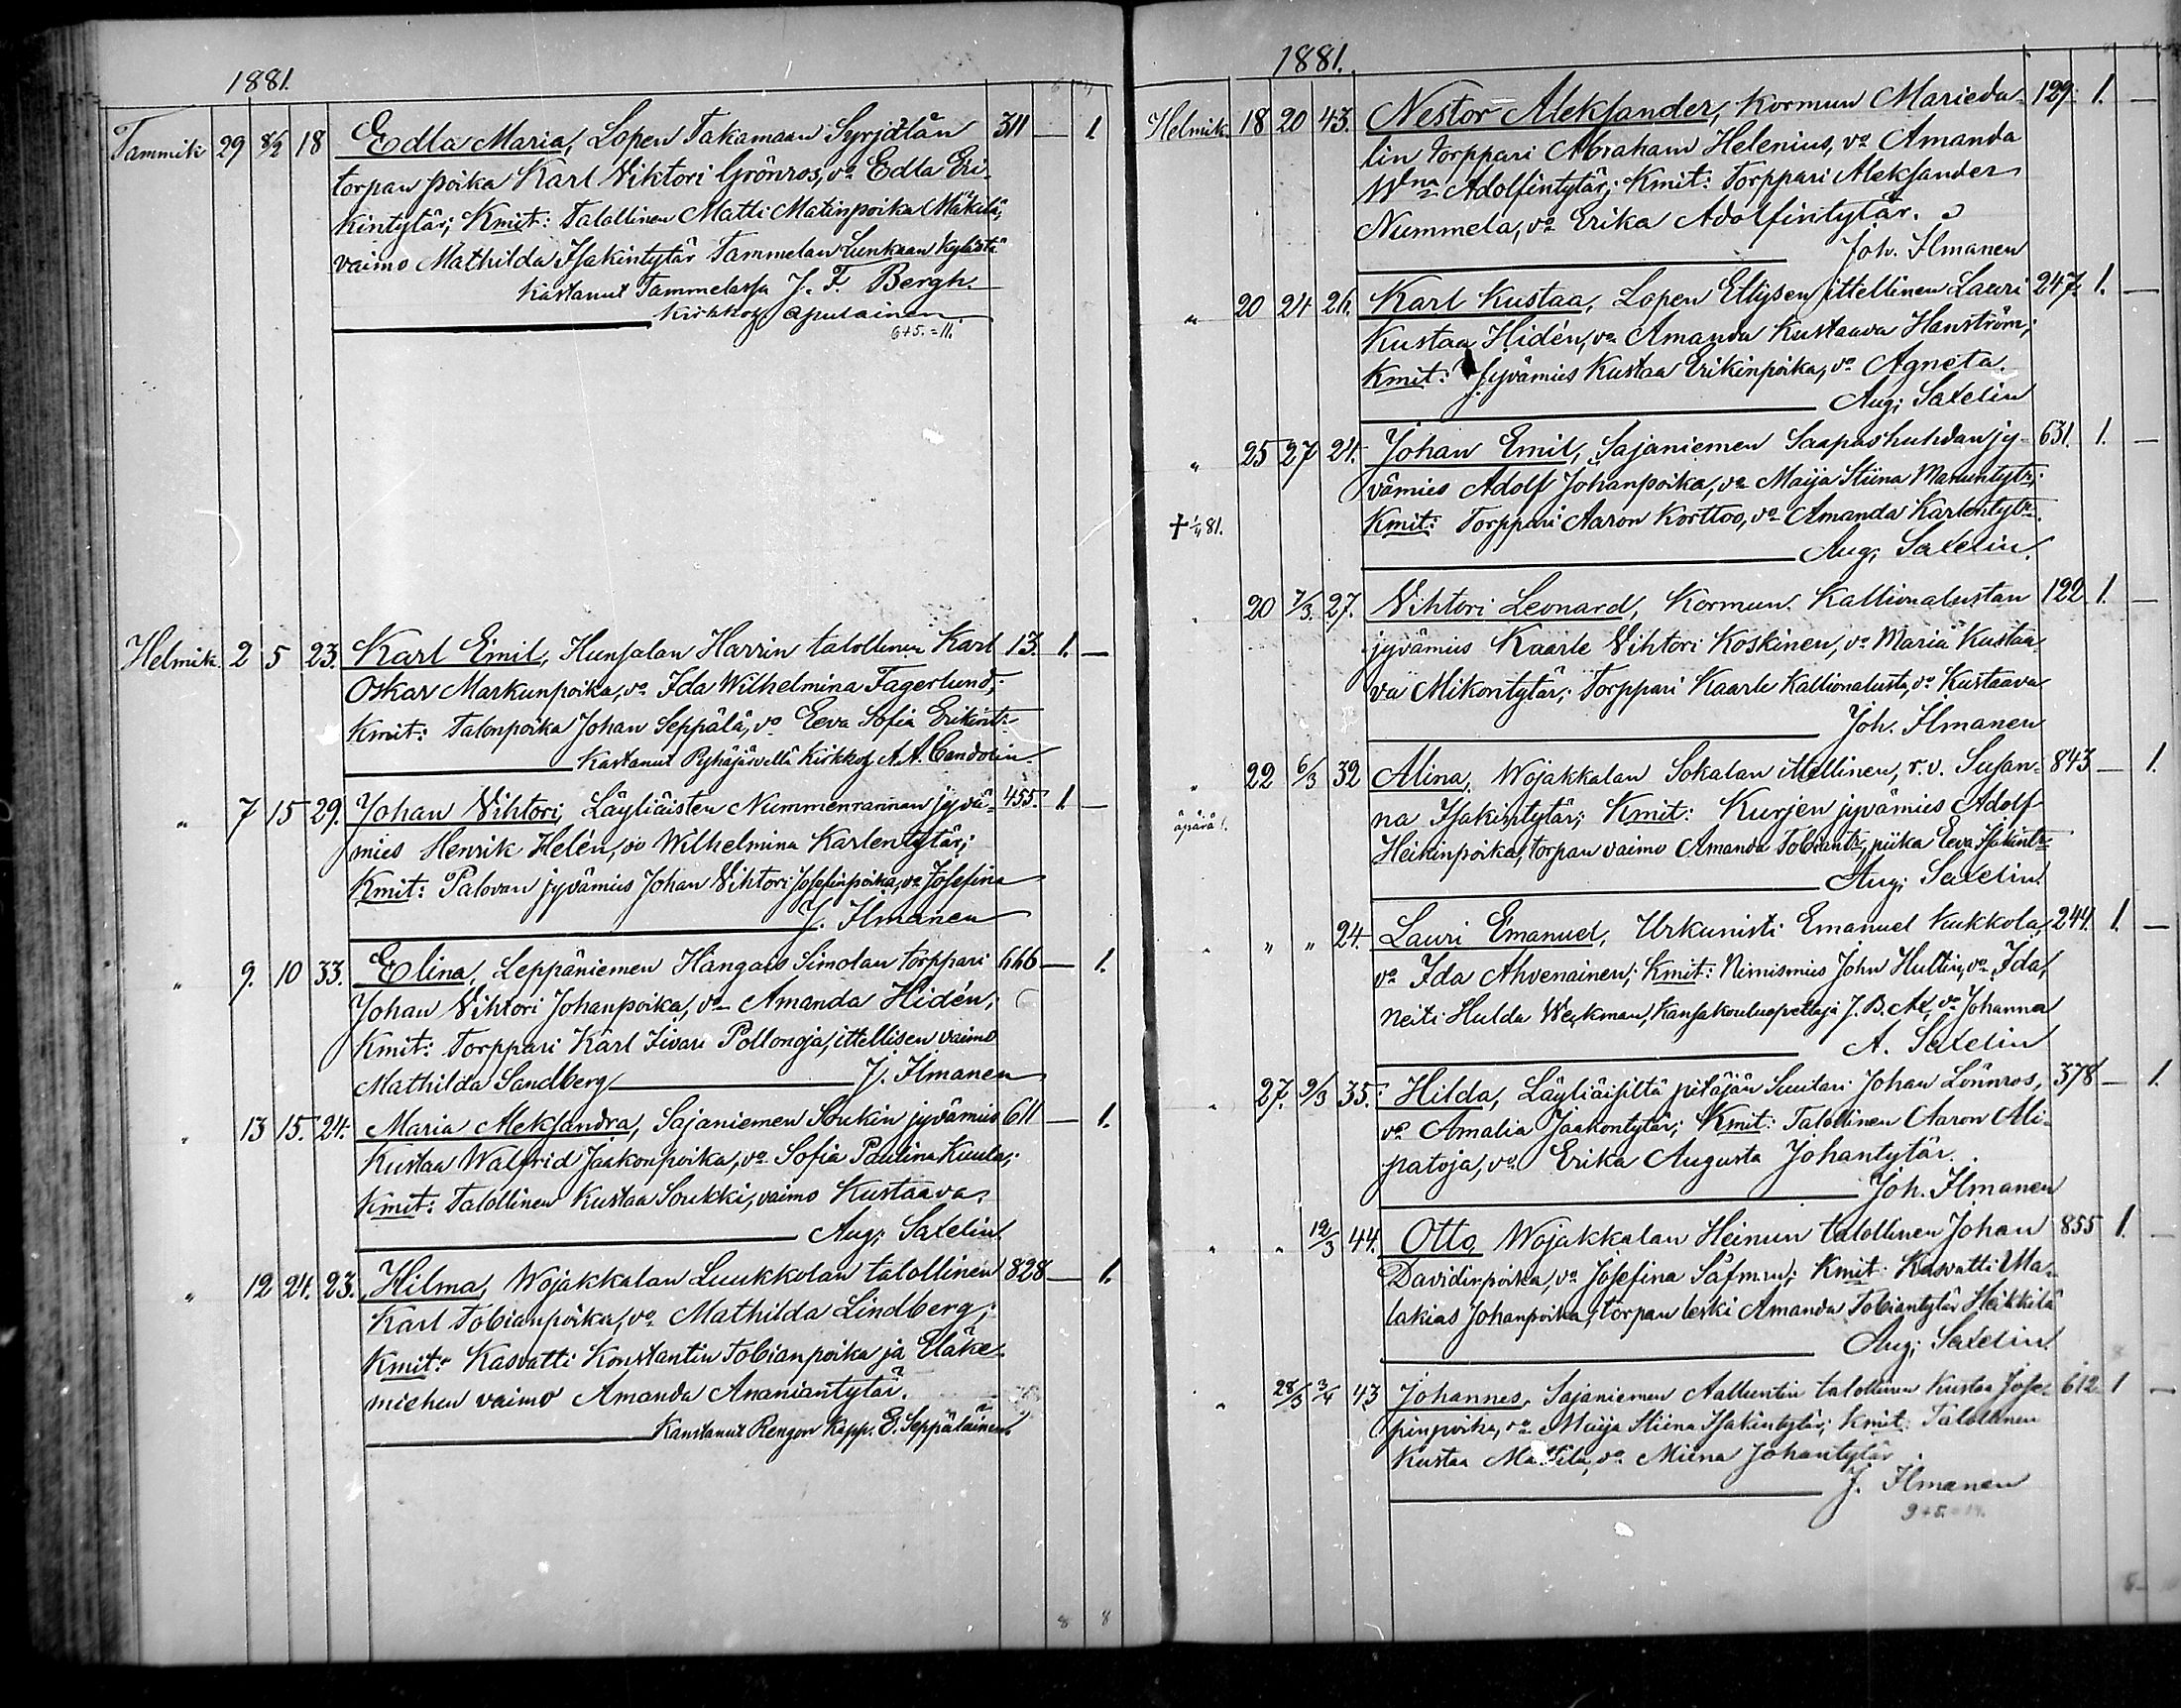 1881.
Tammik 29 8/2 18 Edla Maria, Lopen Takamaan Syrjälän 311 — 1
torpan poika Karl Viktori Grönros, vo Edla Eri-
kintytär; Kmit: Talollinen Matti Matinpoika Mäkilä,
vaimo Mathilda Isakintytär Tammelan Lunkaan kylästä
Kastanut Tammelassa J. F. Bergh.
Kirkkoh. apulainen.
6+5.=11.
Helmik. 2 5 23. Karl Emil, Hunsalan Harrin talollinen Karl 13. 1. —
Oskar Markunpoika, vo Ida Wilhelmina Fagerlund;
Kmit: Talonpoika Johan Seppälä, vo Eeva Sofia Erikint:
Kastanut Pyhäjärvellä Kirkkoh A. A. Candolin.
" 7 15 29. Johan Vihtori, Läyliäisten Nummenrannan jyvä- 455. 1. —
mies Henrik Helén, vo Wilhelmina Karlentytär;
Kmit: Palovan jyvämies Johan Vihtori Josefinpoika, vo Josefina
J. Ilmanen
" 9. 10 33. Elina, Leppäniemen Hangais Simolan torppari 666 — 1.
Johan Vihtori Johanpoika, vo Amanda Hidén;
Kmit: Torppari Karl Iivari Pollonoja, ittellisen vaimo
Mathilda Sandberg J. Ilmanen
" 13 15. 24. Maria Aleksandra, Sajaniemen Soukin jyvämies 611 — 1.
Kustaa Walfrid Jaakonpoika, vo Sofia Paulina Kuula;
Kmit: Talollinen Kustaa Soukki, vaimo Kustaava.
Aug. Saxelin.
" 12 24. 23. Hilma, Wojakkalan Luukkolan talollinen 828 — 1.
Karl Tobianpoika, vo Mathilda Lindberg;
Kmit: Kasvatti Konstantin Tobianpoika ja Eläke-
miehen vaimo Amanda Ananiantytär.
Kanstanut Rengon Kapp. E. Seppäläinen.
8 8
1881.
Helmik. 18 20 43. Nestor Aleksander, Kormun Marieda- 129. 1. —
lin torppari Abraham Helenius, vo Amanda
Wna Adolfintytär; Kmit: Torppari Aleksander
Nummela, vo Erika Adolfintytär.
Joh. Ilmanen
" 20 24 26. Karl Kustaa, Lopen Ellysen ittellinen Lauri 247. 1. —
Kustaa Hidén, vo Amanda Kustaava Hanström;
Kmit: Jyvämies Kustaa Erikinpoika, vo Agneta.
Aug. Saxelin
" 25 27 24. Johan Emil, Sajaniemen Saapashuhdan jy- 631. 1. —
vämies Adolf Johanpoika, vo Maija Stiina Manuntytr;
† 1/4 81. Kmit: Torppari Aaron Korttoo, vo Amanda Karlentytr.
Aug. Saxelin.
" 20 7/3. 27. Vihtori Leonard, Kormun Kallionalustan 122 1. —
jyvämies Kaarle Vihtori Koskinen, vo Maria Kustaa-
va Mikontytär; Torppari Kaarle Kallionalusta, vo Kustaava
Joh. Ilmanen
" 22 6/3 32 Alina, Wojakkalan Sokalan ittellinen, r.v. Susan- 843 — 1.
äpärä! na Isakintytär; Kmit: Kurjen jyvämies Adolf
Heikinpoika, torpan vaimo Amanda Tobiantr, piika Eeva Isakintr
Aug. Saxelin.
" " " 24. Lauri Emanuel, Urkunisti Emanuel Kukkola, 244. 1. —
vo Ida Ahvenainen; Kmit: Nimismies John Hultin, vo Ida,
Neiti Hulda Weckman, Kansakouluopettaja J. B. Al, vo Johanna
A. Saxelin
" 27. 9/3 35. Hilda, Läyliäisiltä pitäjän Suutari Johan Lönnros, 378 — 1.
vo Amalia Jaakontytär; Kmit: Talollinen Aaron Ali-
patoja, vo Erika Augusta Johantytär.
Joh. Ilmanen
" " 12/3 44. Otto, Wojakkalan Heinun talollinen Johan 855 1. —
Davidinpoika, vo Josefina Säfman; Kmit: Kasvatti Ma-
lakias Johanpoika, torpan leski Amanda Tobiantytär Heikkilä
Aug. Saxelin.
" 28/3 3/4 43 Johannes, Sajaniemen Aalluntin talollinen Kustaa Jose- 612 1 —
pinpoika, vo Maija Stiina Isakintytär; Kmit: Talollinen
Kustaa Mattila, vo Miina Johantytär
J. Ilmanen
9+5.=14.